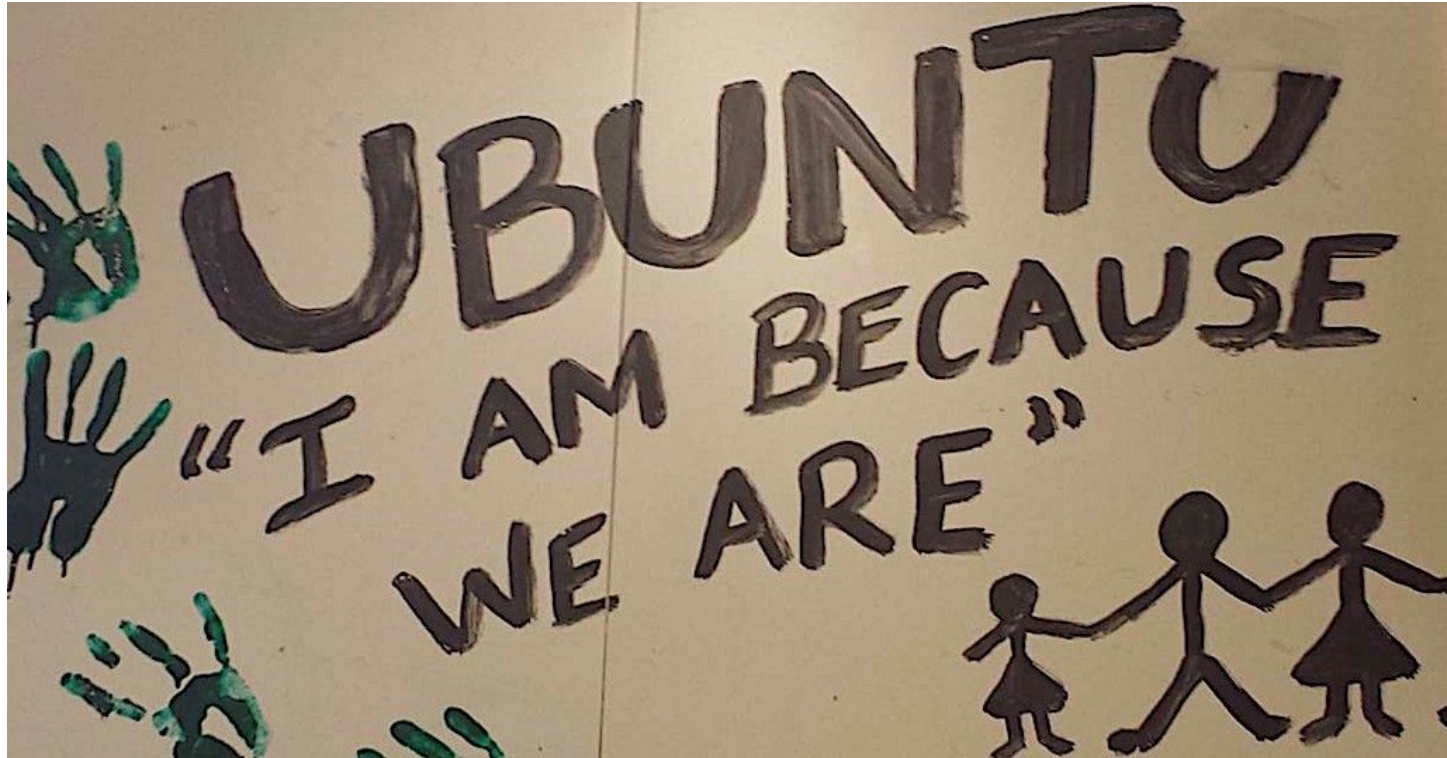 UBUNTU
"I AM BECAUSE
WE ARE"